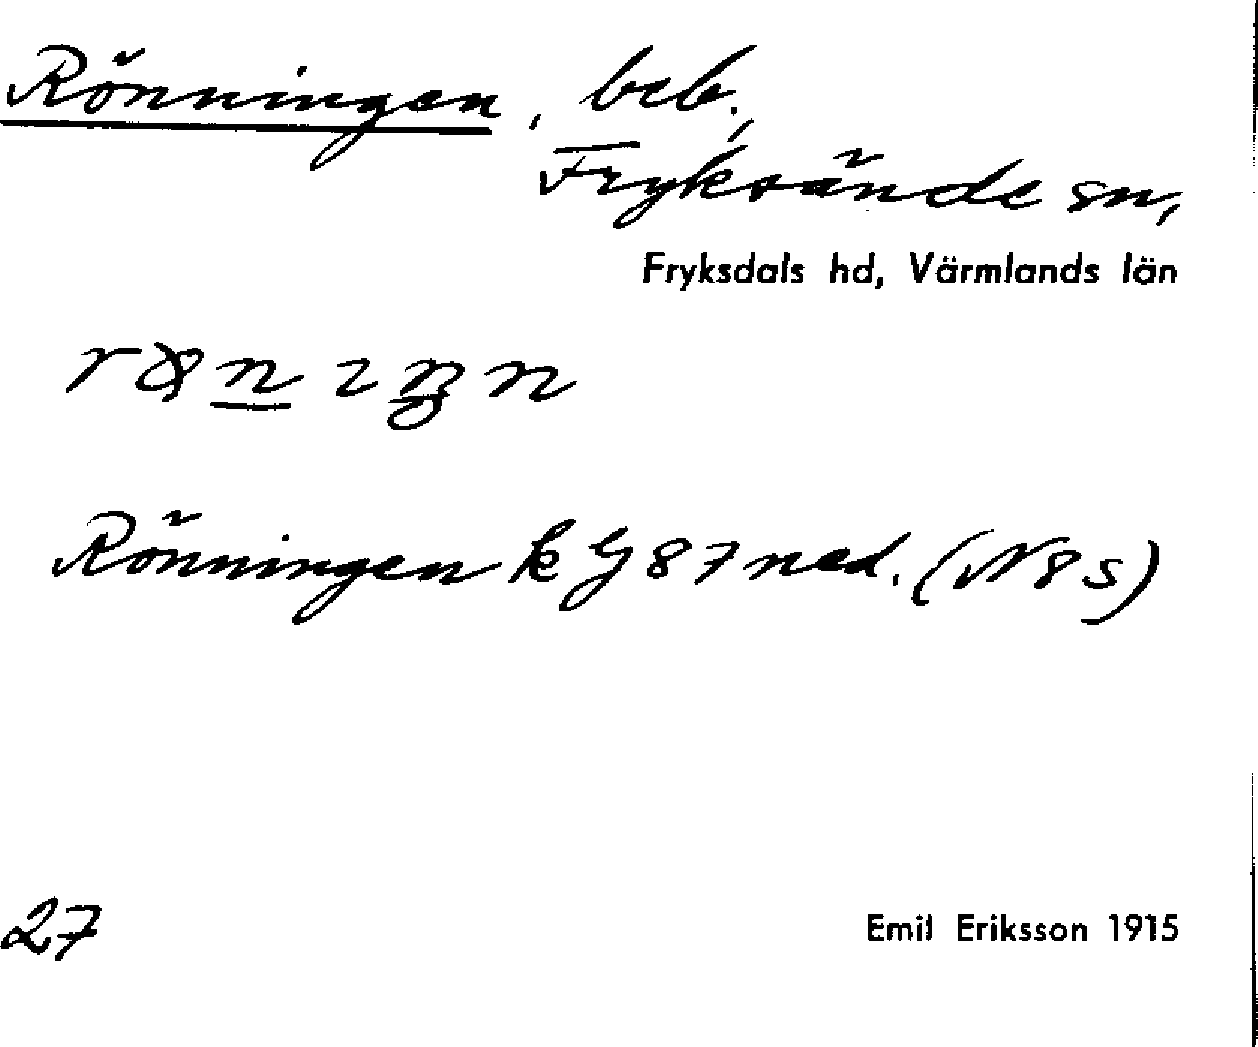 Rönningen, beb.,
Fryksände sn,
Fryksdals hd, Värmlands län
Rönningen k G 87 ned. (N 8 s)
27
Emil Eriksson 1915